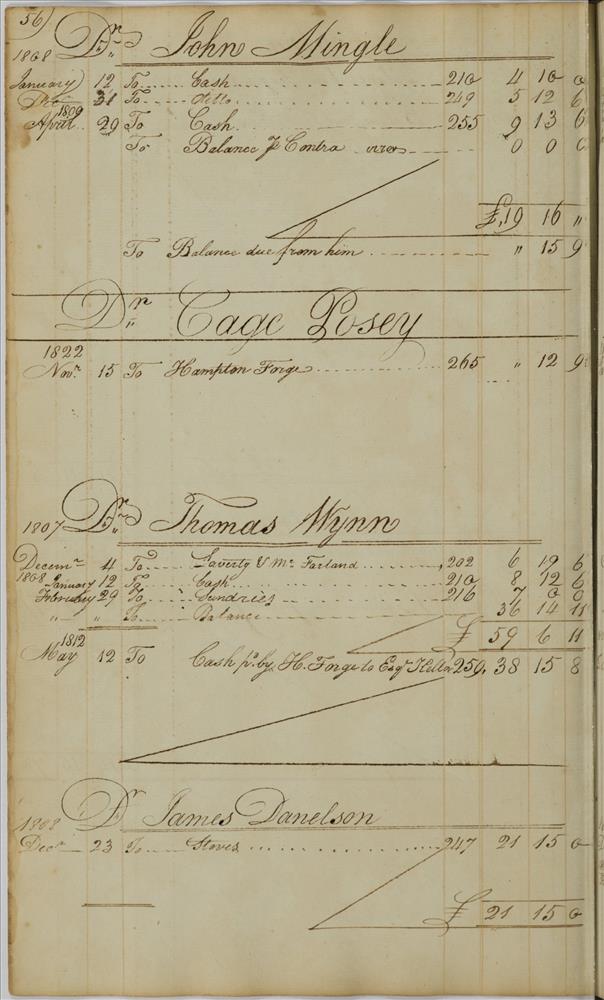 56)
1808 Dr John Mingle
January 12 To Cash 210 4 10 0
Dec 31 To Ditto 249 5 12 6
1809
April 29 To Cash 255 9 13 6
To Balance pr Contra 0 0 0
£ 19 16 "
To Balance due from him " 15 9
Dr Cage Posey
1822
Novr 15 To Hampton Forge 265 " 12 9
1807 Dr Thomas Wynn
Decemr 4 To Laverty & Mc Farland 202 6 19 6
1808 January 12 To Cash 210 8 12 6
February 29 To Sundries 216 7 0 0
" " To Balance 36 14 11
£ 59 6 11
1812
May 12 To Cash pd by H. Forge to Esqr 259 38 15 8
1808 Dr James Danelson
Decr 23 To Stoves 247 21 15 0
£ 21 15 0